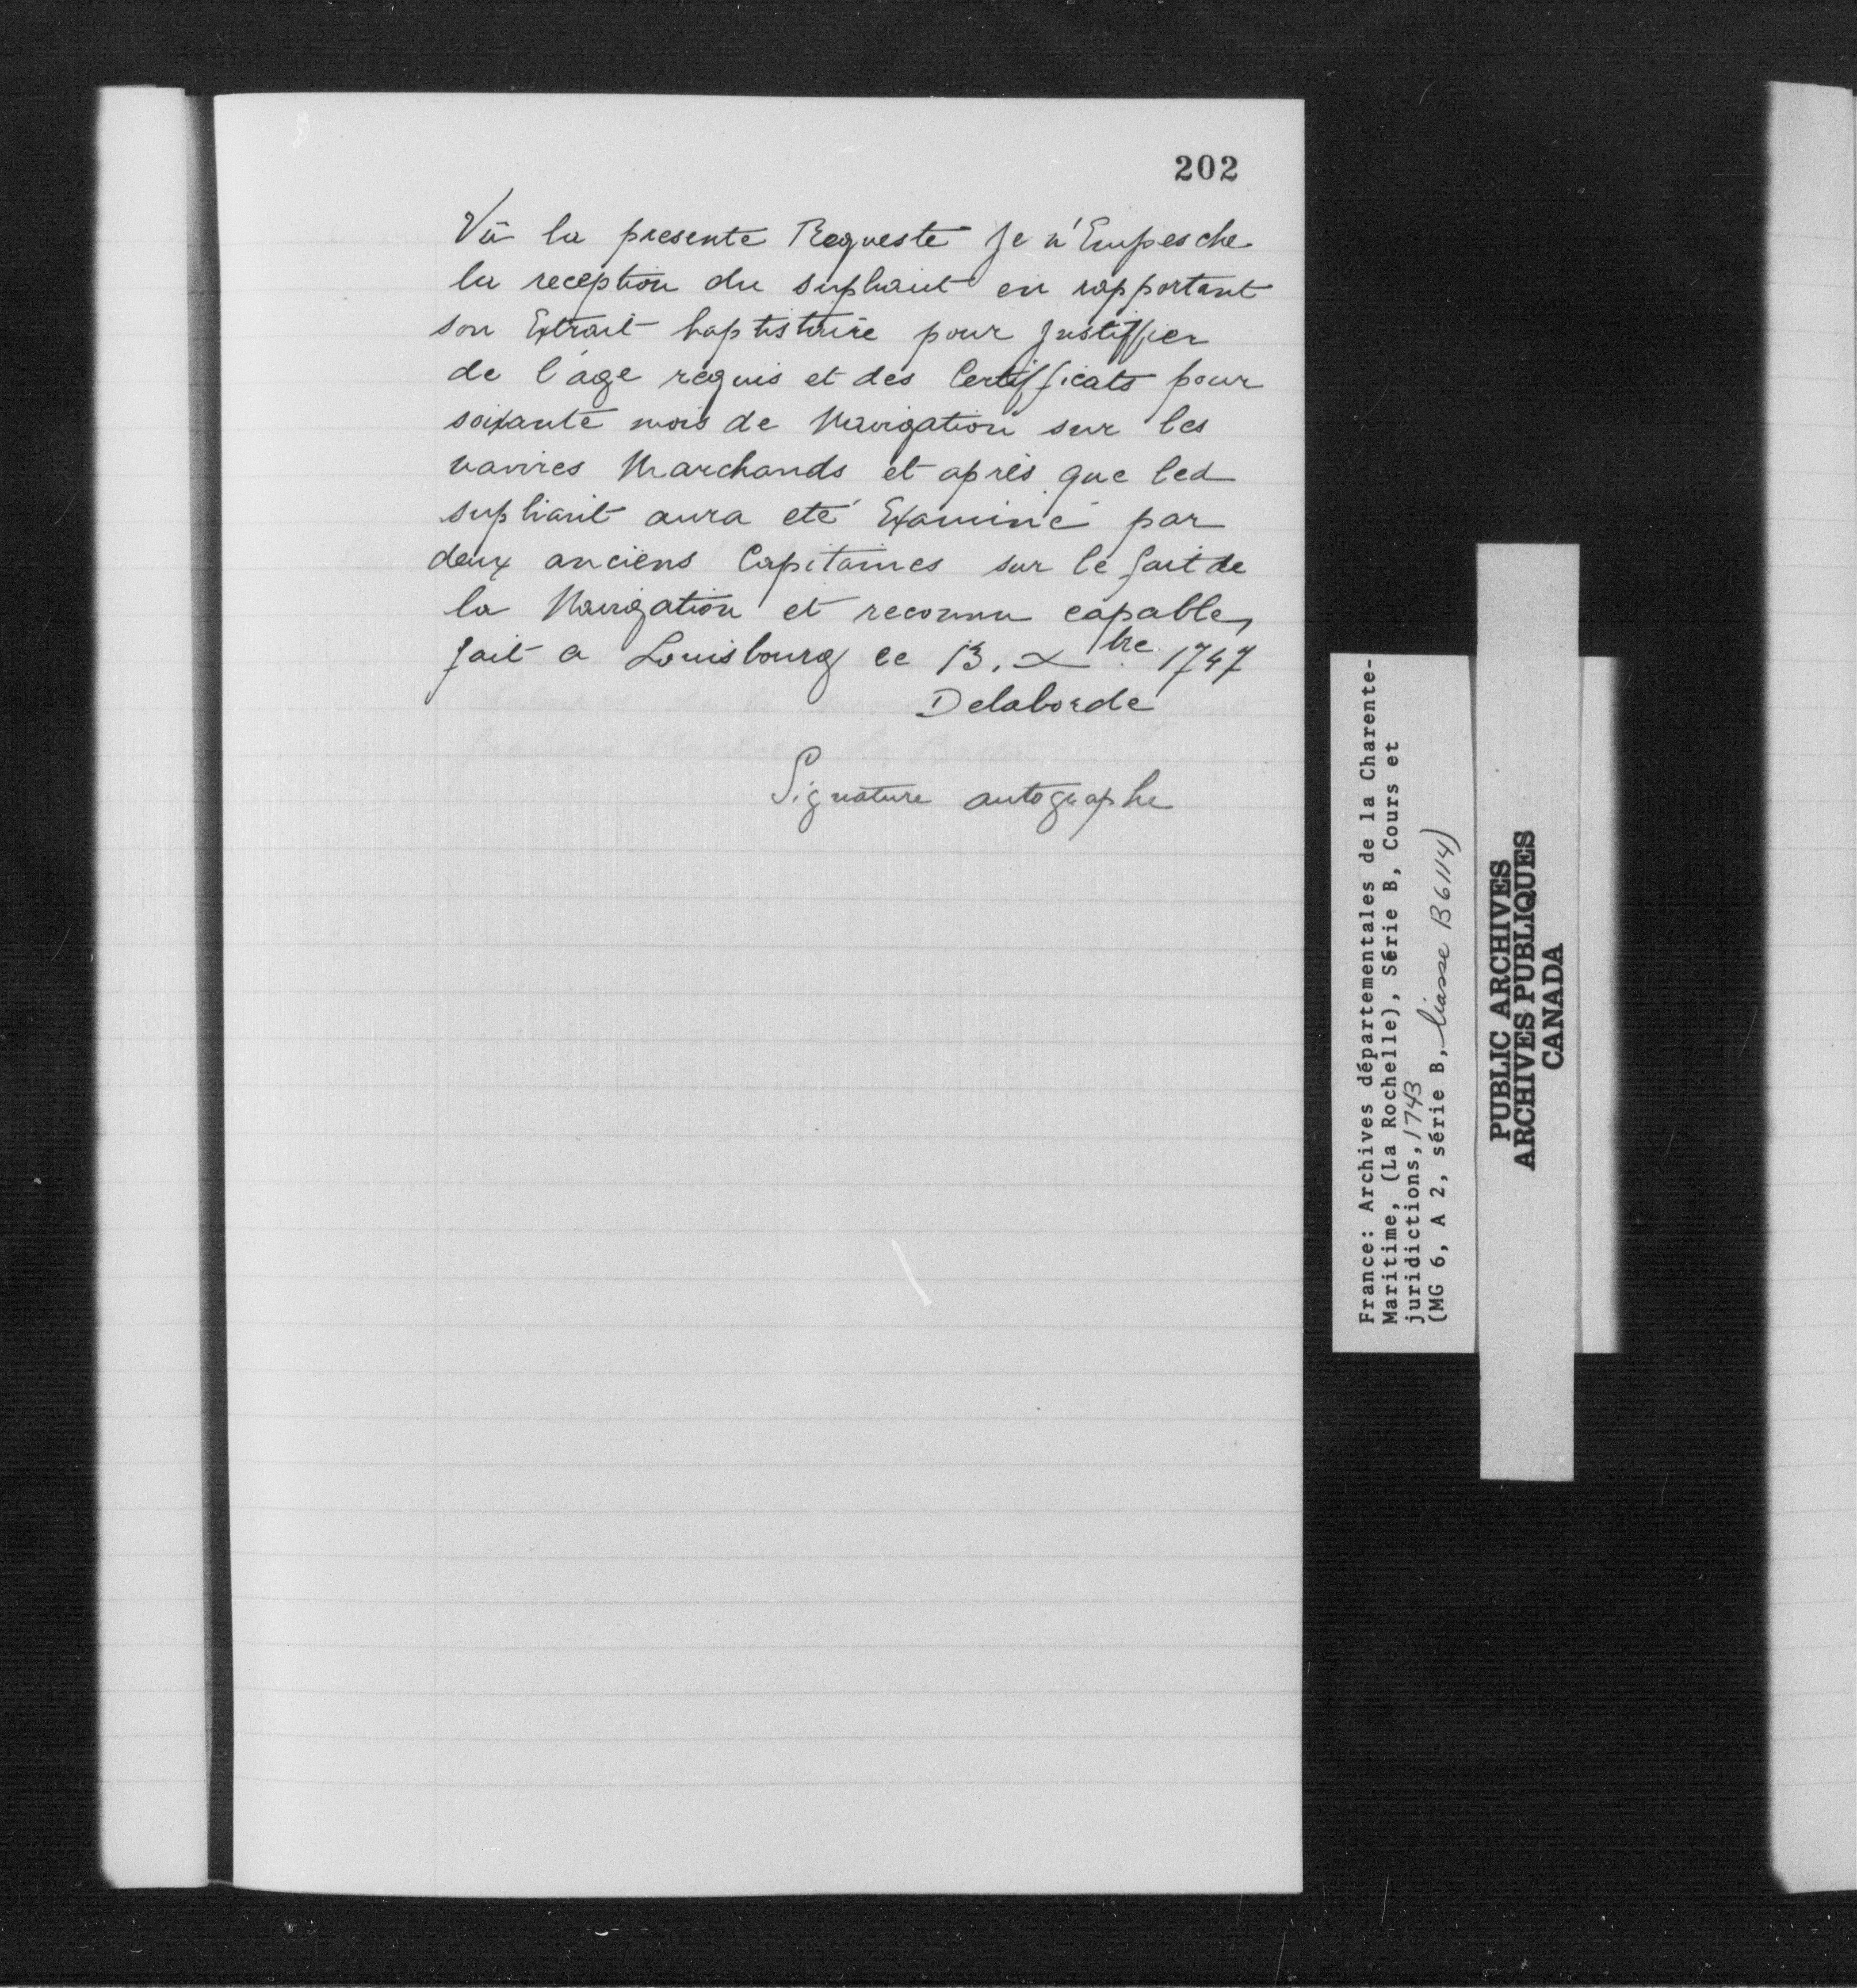 202
Vû la presente Requeste Je n'Empesche
la reception du supliant en rapportant
son Extrait baptistaire pour Justiffier
de l'áge requis et des Certifficats pour
soixante mois de Navigation sur les
navires Marchands et aprés que led
supliant aura eté Examiné par
deux anciens Capitaines sur le fait de
la Navigation et reconnu capable,
fait a Louisbourg ce 13. Xbre. 1747
Delaborde
Signature autographe
France: Archives départementales de la Charente-
Maritime, (La Rochelle), Série B, Cours et
juridictions, 1743
(MG 6, A 2, série B, liasse B6114)
PUBLIC ARCHIVES
ARCHIVES PUBLIQUES
CANADA